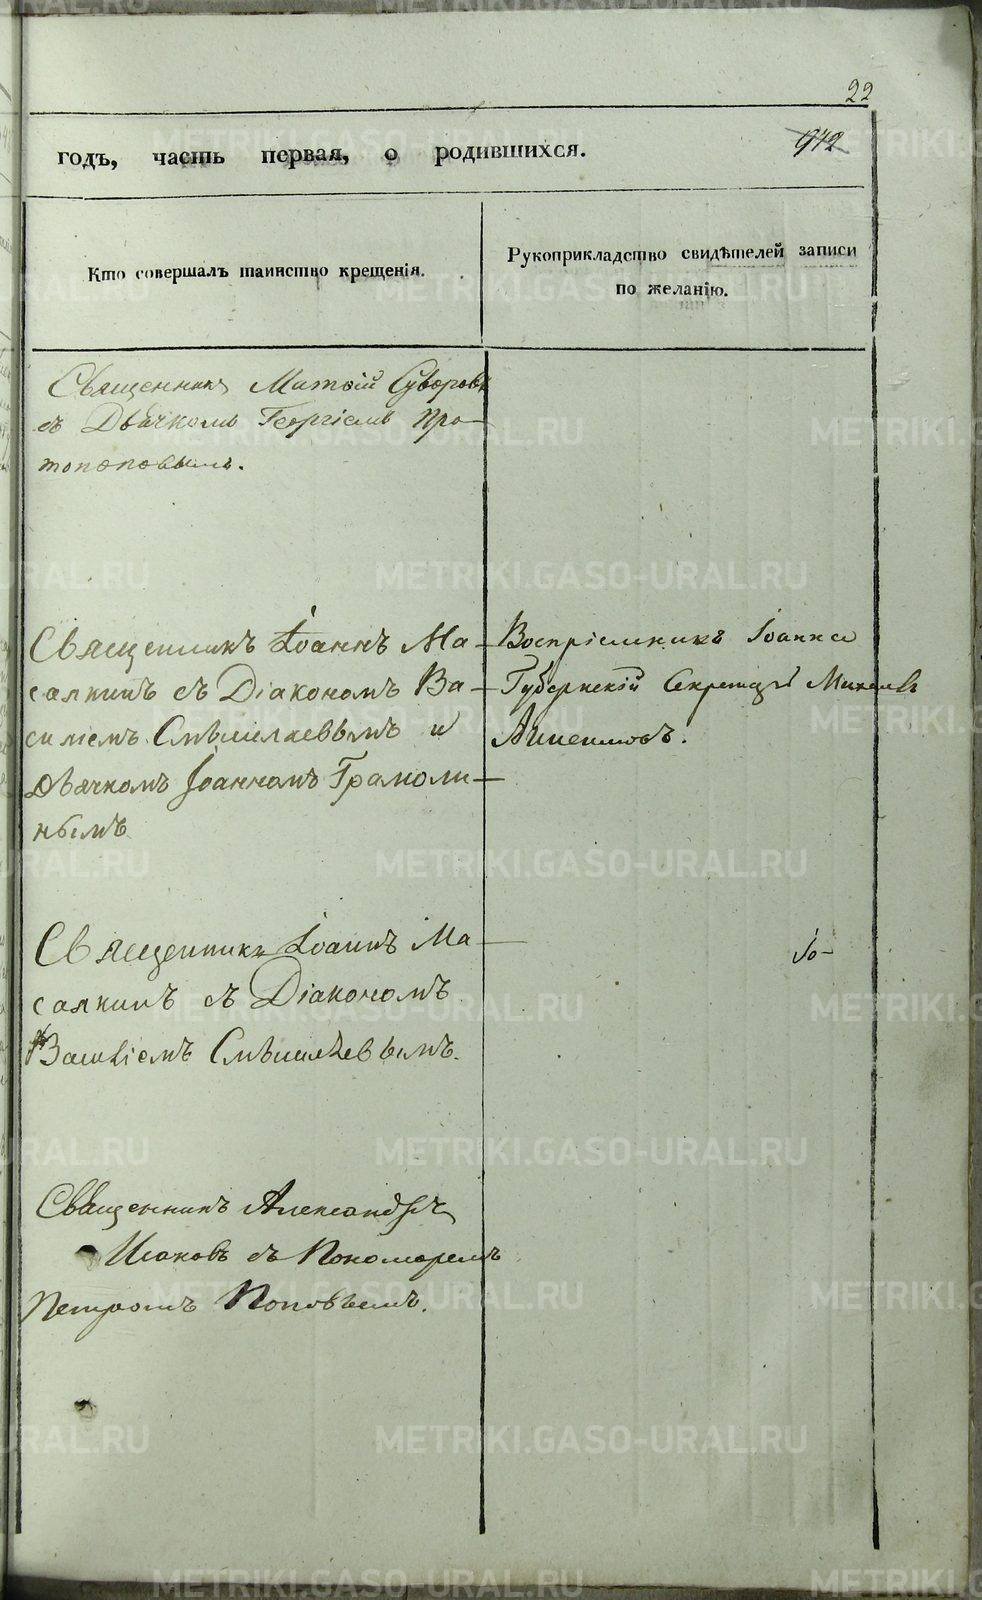 22
942
годъ, часть первая, о родившихся.
Кто совершалъ таинство крещенія.
Рукоприкладство свидѣтелей записи
по желанію.
Священникъ Матѳій Суворовъ
съ Дьячкомъ Георгіемъ Про-
топоповымъ.
Священникъ Іоаннъ Ма-
салкинъ съ Діакономъ Ва-
силіемъ Смышляевымъ и
дьячкомъ Іоанномъ Грамоли-
нымъ
Воспріемникъ Іоанна
Губернскій Секретарь Михаилъ
Священникъ Іоаннъ Ма-
салкинъ съ Діакономъ
Василіемъ Смышляевымъ.
Священникъ Александръ
съ Пономаремъ
Петромъ Поповымъ.
METRIKI.GASO-URAL.RU